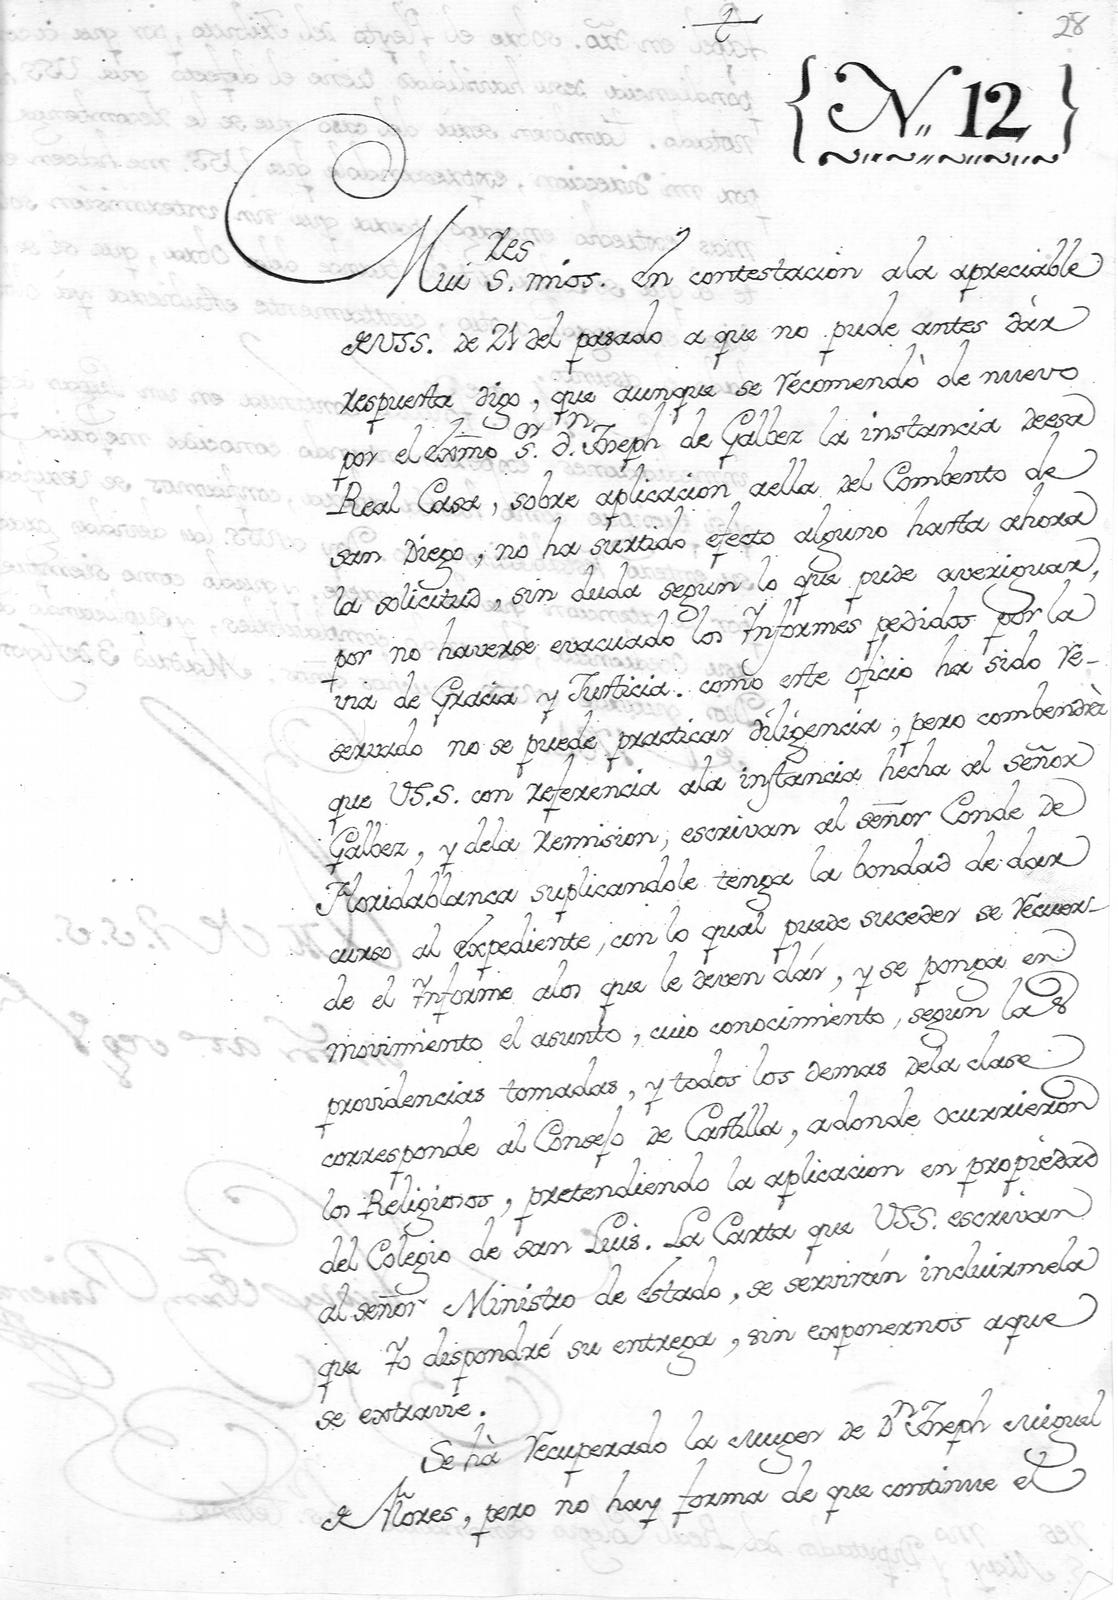 28
{ N,, 12 }
Mui S.res mios. En contestacion ala apreciable
de VSS. de 21 del pasado a que no pude antes dàr
respuesta digo, que aunque se recomendò de nuevo
por el Exmo S.or d.n Joseph de Galbez la instancia deesa
Real Casa, sobre aplicacion aella del Combento de
san Diego, no ha surtido efecto alguno hasta ahora
la solicitud, sin duda segun lo que pude averiguar,
por no haverse evacuado los Informes pedidos por la
via de Gracia y Justicia. como este oficio ha sido re-
servado no se puede practicar diligencia, pero combendrà
que VS.S. con referencia ala instancia hecha al señor
Galbez, y dela remision, escrivan al señor Conde de
Floridablanca suplicandole tenga la bondad de dar
curso al Expediente, con lo qual puede suceder se recuer-
de el Informe alos que le deven dár, y se ponga en
movimiento el asunto, cuio conocimiento, segun las
providencias tomadas, y todos los demas dela clase
corresponde al Consejo de Castilla, adonde ocurrieron
los Religiosos, pretendiendo la aplicacion en propiedad
del Colegio de san Luis. La Carta que VSS. escrivan
al señor Ministro de Estado, se servirán incluirmela
que Yo dispondré su entrega, sin exponernos aque
se extravie.
Se hà recuperado la Muger de D.n Joseph Miguel
de Flores, pero no hay forma de que continue el